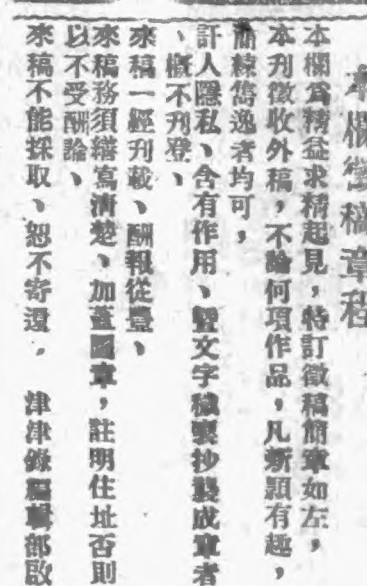 本欄徵稿章程
本欄爲精益求精起見，特訂徵稿簡章如左，
本刊徵收外稿，不論何項作品，凡新穎有趣，
簡練雋逸者均可，
訐人隱私、含有作用、曁文字穢褻抄襲成章者
、槪不刊登、
來稿一經刊載、酬報從豐、
來稿務須繕寫清楚、加蓋圖章，註明住址否則
以不受酬論、
來稿不能採取、恕不寄還． 津津錄編輯部啟